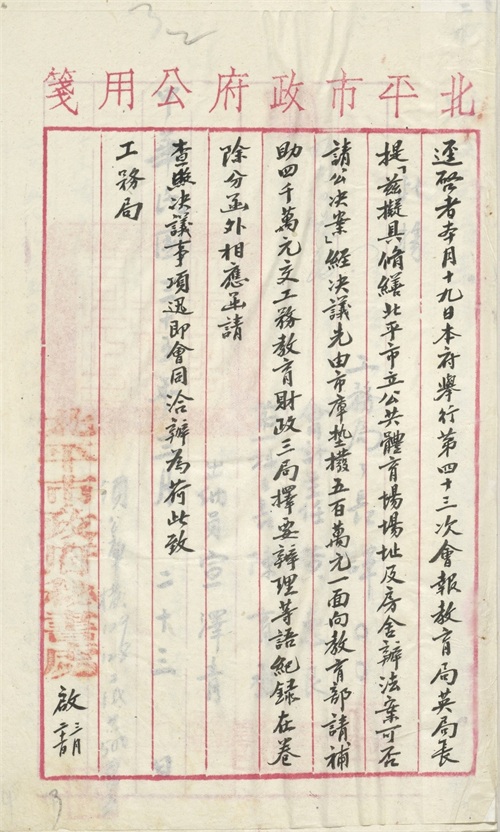 北平市政府公用箋
逕啓者本月十九日本府舉行第四十三次會報教育局英局長
提「茲擬具修繕北平市立公共體育場場址及房舍辦法案可否
請公决案」經决議先由市庫墊撥五百萬元一面向教育部請補
助四千萬元交工務教育財政三局擇要辦理等語紀錄在卷
除分函外相應函請
查照决議事項迅即會同洽辦為荷此致
工務局
北平市政府秘書處
啟